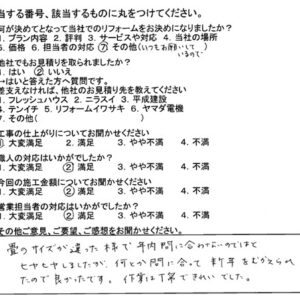 当する番号、該当するものに丸をつけてください。
何が決めてとなって当社でのリフォームをお決めになりましたか?
1. プラン内容 2. 評判 3. サービスや対応 4. 当社の場所
5. 価格 6. 担当者の対応 ⑦ その他(いつもお願いして
いるので
他社でもお見積りを取れましたか?
1. はい ② いいえ
→はいと答えた方へ質問です。
差支えなければ、他社のお見積り先を教えてください
1. フレッシュハウス 2. ニラスイ 3. 平成建設
4. テンイチ 5. リフォームイワサキ 6. ヤマダ電機
7. その他( )
工事の仕上がりについてお聞かせください
① 大変満足 2. 満足 3. やや不満 4. 不満
職人の対応はいかがでしたか?
1. 大変満足 ② 満足 3. やや不満 4. 不満
今回の施工金額についてお聞かせください
1. 大変満足 ② 満足 3. やや不満 4. 不満
営業担当者の対応はいかがでしたか?
① 大変満足 2. 満足 3. やや不満 4. 不満
その他ご意見、ご要望、ご感想をお聞かせください。
畳のサイズが違った様で年内間に合わないのではと
ヒヤヒヤしましたが、何とか間に合って新年をむかえられ
たので良かったです。作業は丁寧できれいでした。